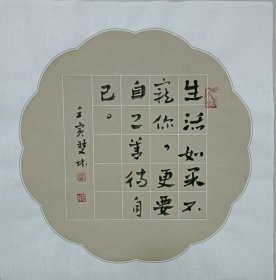 生活如果不
宠你，更要
自己善待自
己。
壬寅楚林